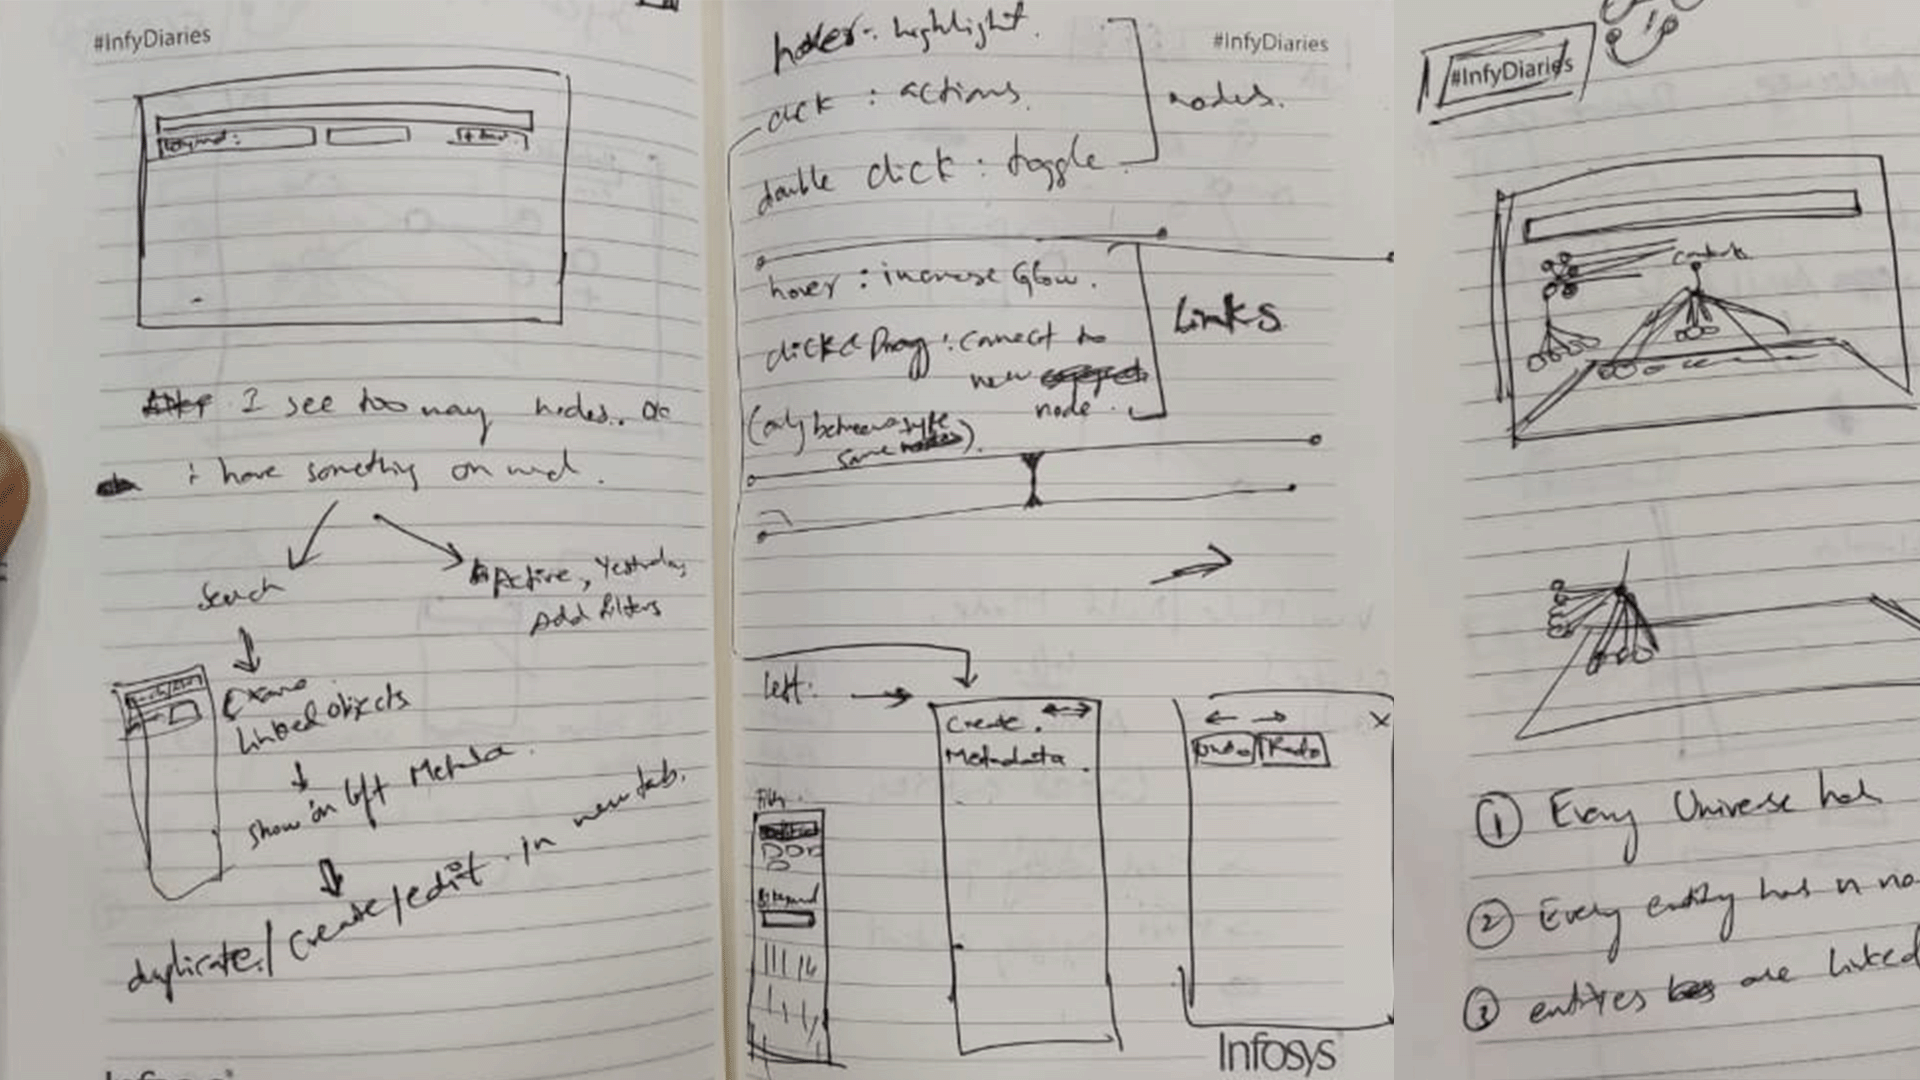 #InfyDiaries
Keyword:
I see too many nodes. or
i have something on mind.
Search
Active, Yesterday
Add filters
linked objects
show on left Metadata.
duplicate / create/edit in new tab.
Infosys
hover: highlight.
#InfyDiaries
click : actions.
nodes.
double click : toggle.
hover : increase Glow.
Links
click & Drag : connect to
new
node.
(only between
same
Left:
Create.
Metadata.
X
Undo Redo
Filter
Infosys
#InfyDiaries
① Every Universe has
② Every entity has n no
③ entities are linked